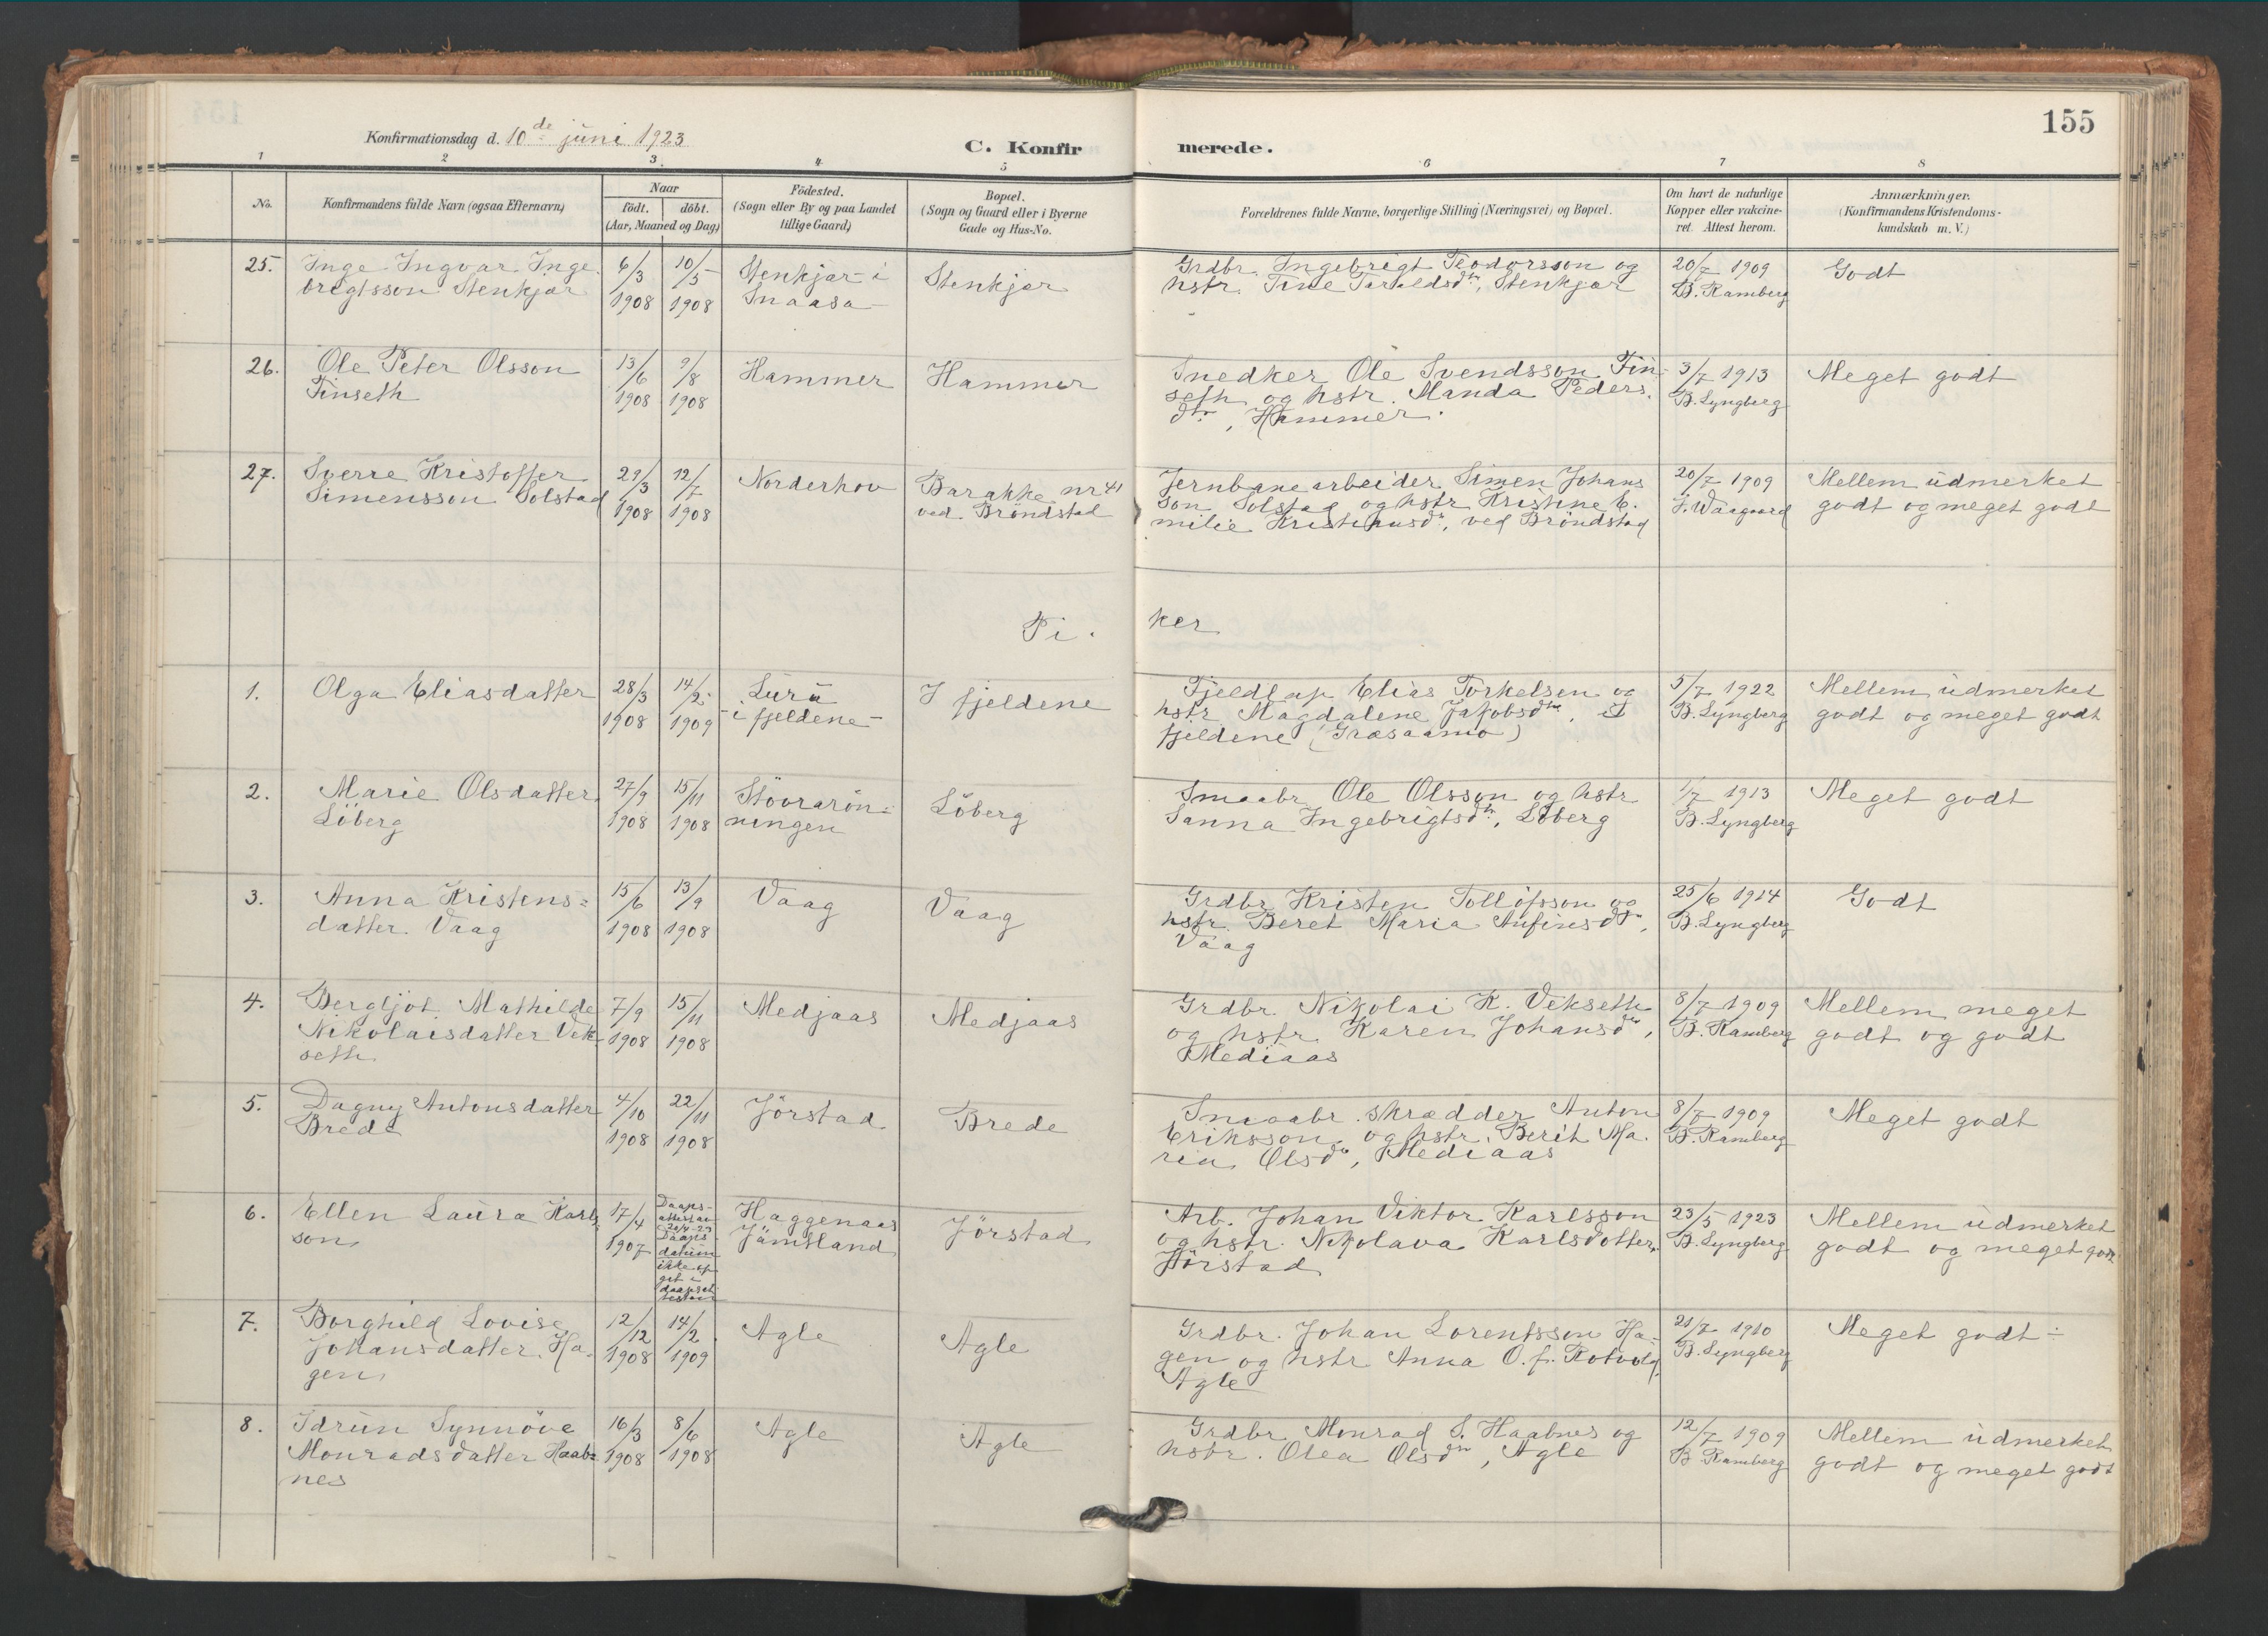 155
Konfirmationsdag d. 10de juni 1923
C. Konfirmerede.
1 2 3. 4. 5 6 7 8
No.
Konfirmandens fulde Navn (ogsaa Efternavn)
Naar
født. döbt.
(Aar, Maaned og Dag)
Födested.
(Sogn eller By og paa Landet
tillige Gaard)
Bopæl.
(Sogn og Gaard eller i Byerne
Gade og Hus-No.
Forældrenes fulde Navne, borgerlige Stilling (Næringsvei) og Bopæl.
Om havt de naturlige
Kopper eller vakcine-
ret. Attest herom.
Anmærkninger.
(Konfirmandens Kristendoms-
kundskab m. V.)
25. Inge Ingvar Inge
bregtsson Stenkjær
6/3
1908
10/5
1908
Stenkjær i
Snaasa
Stenkjær
Grdbr. Ingebrigt Teodorsson og
hstr. Tine Taraldsdtr, Stenkjær
20/7 1909
B. Ramberg
Godt
26. Ole Peter Olsson
Finseth
13/6
1908
9/8
1908
Hammer
Hammer
Snedker Ole Svendsson Fin-
seth og hstr. Manda Peders.
dtr, Hammer.
3/7 1913
B. Lyngberg
Meget godt
27. Sverre Kristoffer
Simensson Solstad
29/3
1908
12/7
1908
Norderhov
Barakke nr 41
ved Bröndstad
Jernbanearbeider Simen Johans
son Solstad og hstr Kristine E.
milie Kristiansdtr, ved Bröndstad
20/7 1909
J. Waagaard
Mellem udmerket
godt og meget godt
Pi.ker
1. Olga Eliasdatter
28/3
1908
14/2
1909
Luru
- i fjeldene -
I fjeldene
Fjeldlap Elias Torkelsen og
hstr Magdalene Jakobsdtr, I
fjeldene (Græsaamo)
5/7 1922
B. Lyngberg
Mellem udmerket
godt og meget godt
2. Marie Olsdatter
Löberg
27/9
1908
15/11
1908
Stövrarön-
ningen
Löberg
Smaabr. Ole Olsson og hstr
Sanna Ingebrigtsdtr, Löberg
1/7 1913
B. Lyngberg
Meget godt
3. Anna Kristens=
datter Vaag
15/6
1908
13/9
1908
Vaag
Vaag
Grdbr Kristen Tollofsson og
hstr. Beret Maria Anfinsdtr,
Vaag
25/6 1914
B. Lyngberg
Godt
4. Bergljot Mathilde
Nikolaisdatter Vek-
seth
7/9
1908
15/11
1908
Medjaas
Medjaas
Grdbr. Nikolai K. Vekseth
og hstr Karen Johansdtr,
Mediaas
8/7 1909
B. Ramberg
Mellem meget
godt og godt
5. Dagny Antonsdatter
Brede
4/10
1908
22/11
1908
Jörstad
Brede
Smaabr. skrædder Anton
Eriksson og hstr. Berit Ma.
ria Olsdtr, Mediaas
8/7 1909
B. Ramberg
Meget godt
6. Ellen Laura Karls
son
17/4
1907
Daaps-
attest av
20/4-23
Daaps
datum
ikke op
git i
daapsat
testen
Haggenaas
Jämtland
Jörstad
Arb. Johan Viktor Karlsson
og hstr. Nikolava Karlsdotter,
Jörstad
23/5 1923
B. Lyngberg
Mellem udmerket
godt og meget godt
7. Borghild Lovise
Johansdatter Ha-
gen
12/12
1908
14/2
1909
Agle
Agle
Grdbr. Johan Lorentsson Ha-
gen og hstr Anna O. f. Rotvold,
Agle
21/7 1910
B. Lyngberg
Meget godt ÷
8. Idrun Synnöve
Monradsdatter Haab=
nes
16/3
1908
8/6
1908
Agle
Agle
Grdbr Monrad S. Haabnes og
hstr. Olea Olsdtr, Agle
12/7 1909
B. Ramberg
Mellem udmerket
godt og meget godt